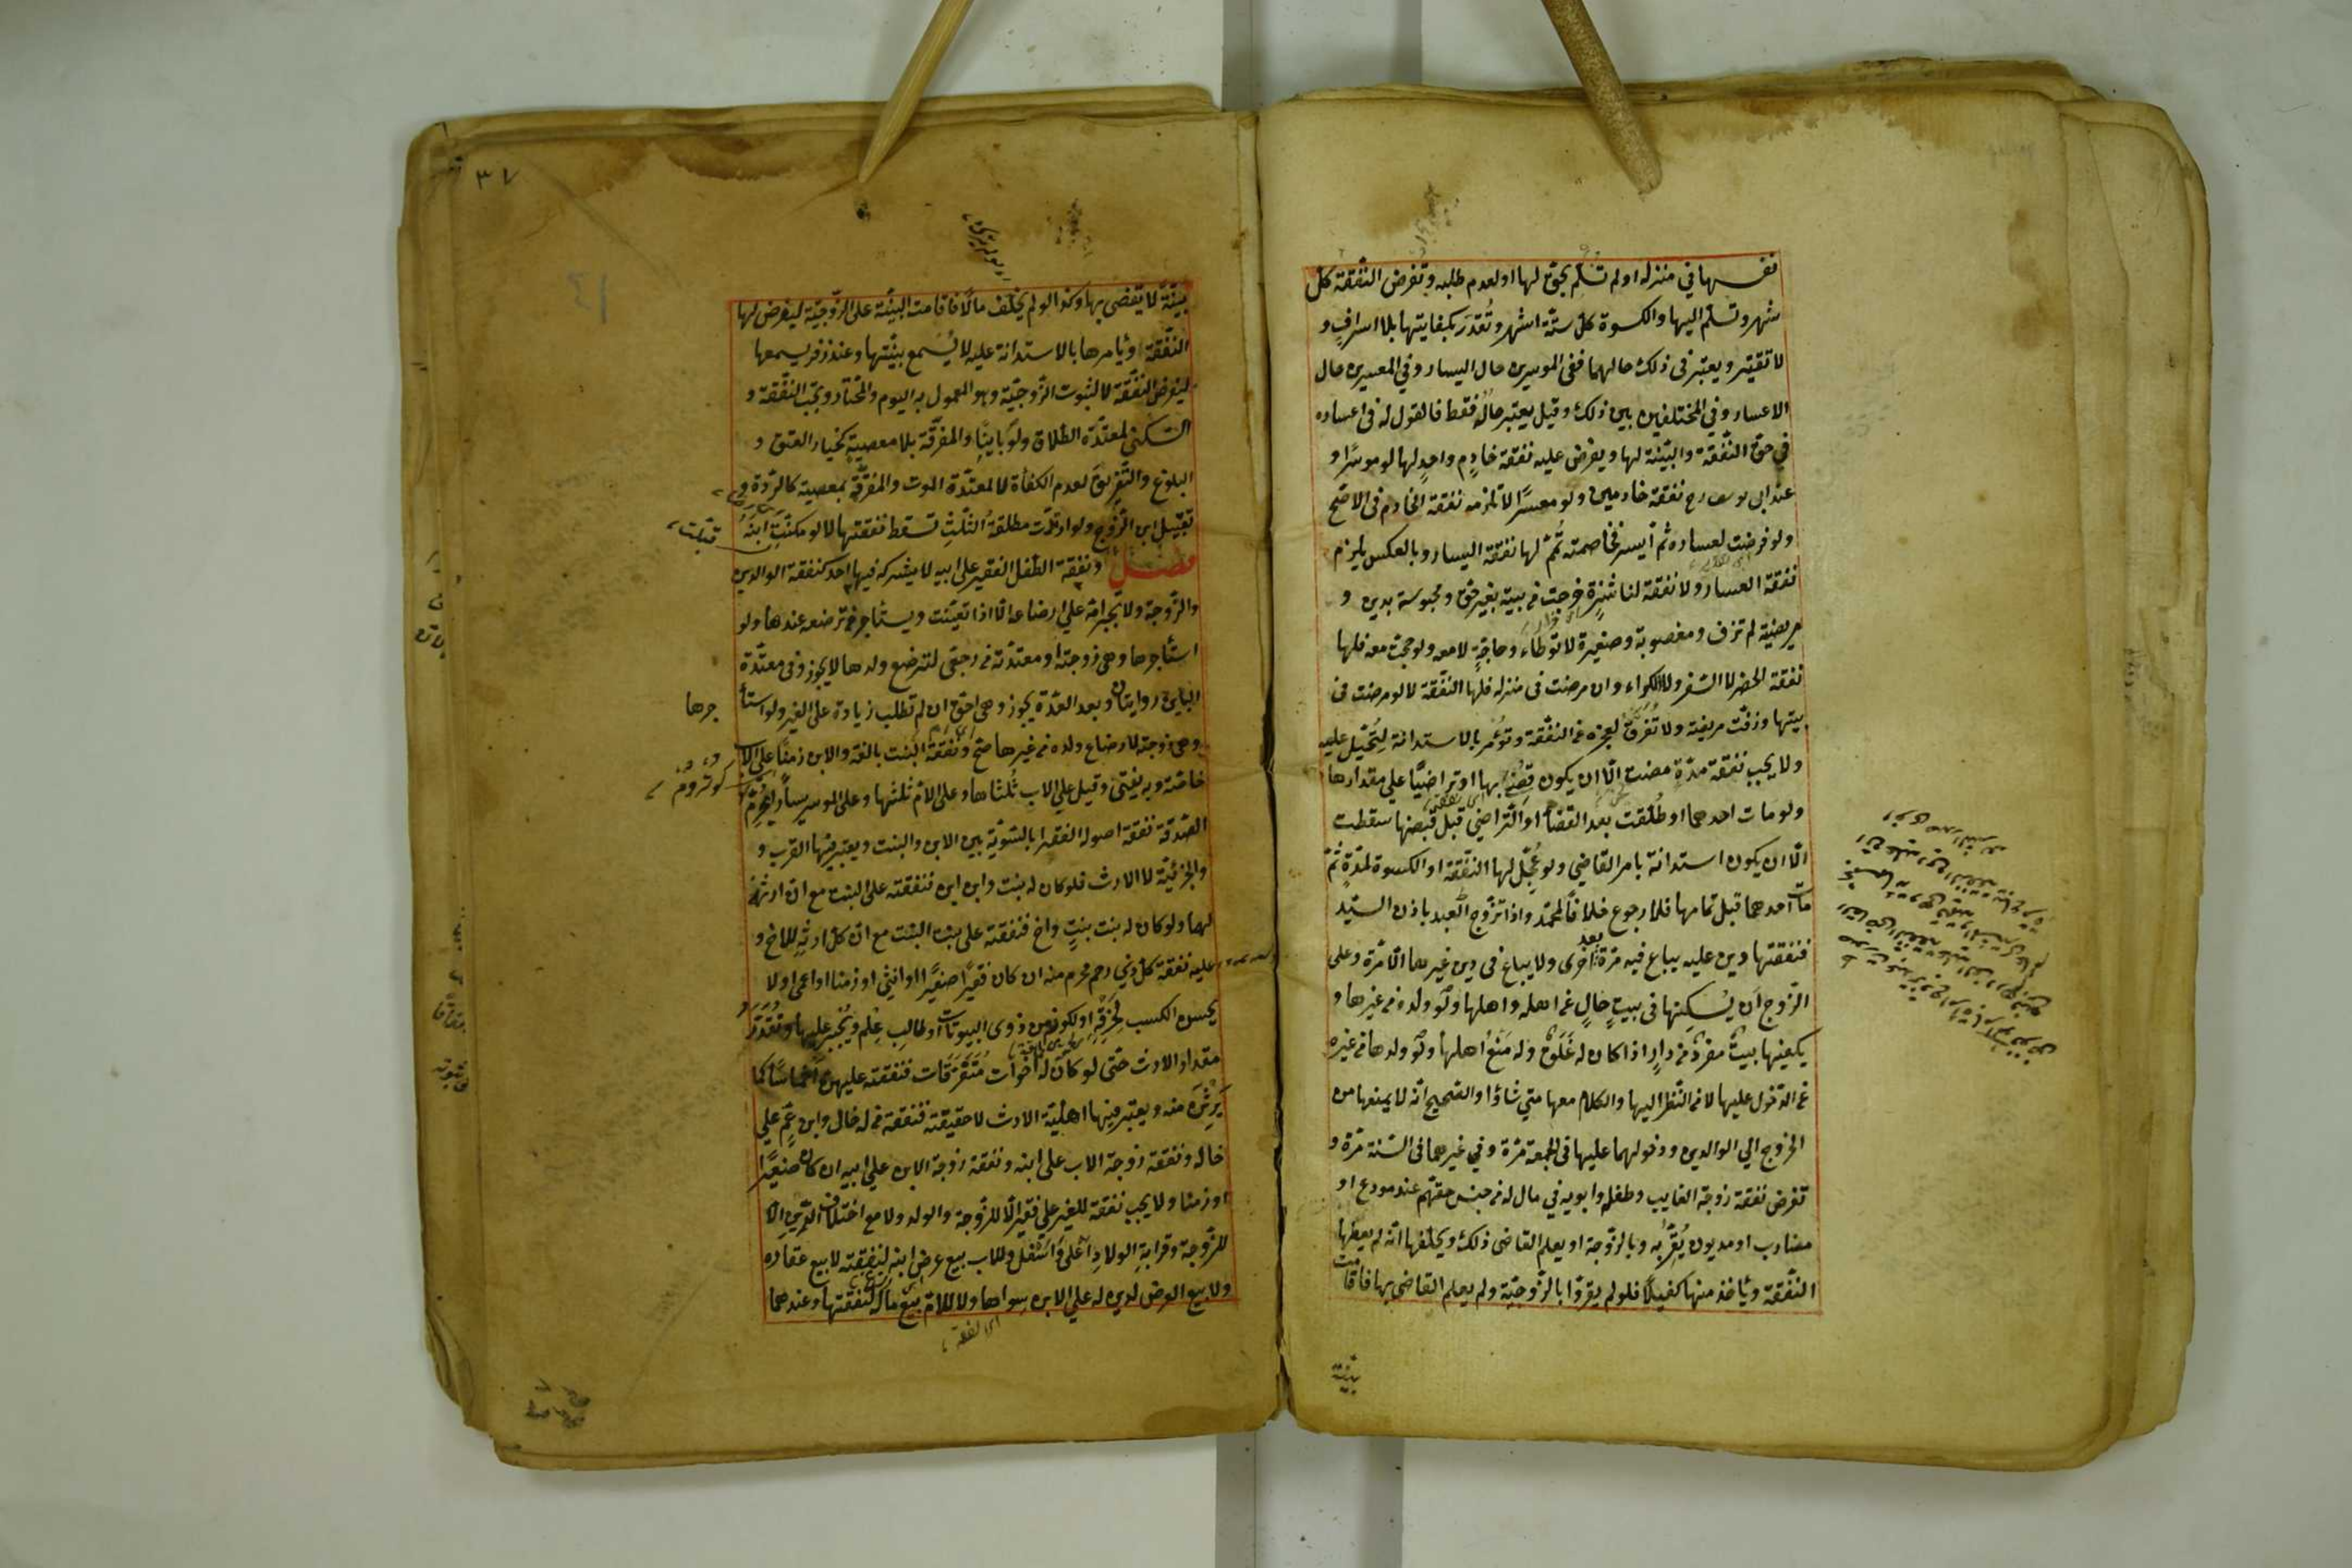 نفسها في منزله او لم تسلم بحق لها او لعدم طلبه وتفرض النفقة كل
شهر وتسلم اليها والكسوة كل ستة اشهر وتُقدَر بكفايتها بلا اسرافٍ و
لا تقتير ويعتبر في ذلك حالهما ففي الموسرين حال اليسار وفي المعسرين حال
الاعسار وفي المختلفين بين ذلك وقيل يعتبر حالُه فقط فالقول له في اعساره
في حق النّفقة والبيّنة لها ويفرض عليه نفقة خادمٍ واحدٍ لها لو موسًرا و
عند ابى يوسف رح نفقة خادمين ولو معسرًا لا تلزمه نفقة الخادم في الاصح
ولو فرضت لعساره ثم ايسر فخاصمته تُمّم لها نفقة اليسار وبالعكس يلزم
نفقة العسار ولا نفقة لناشزةٍ خرجت من بيته بغير حق ومحبوسة بدين و
مريضة لم تزف ومغصوبة وصغيرة لا توطاء وحاجّةٍ لا معه ولو حجت معه فلها
نفقة الحضر لا السّفر ولا الكراء وان مرضت في منزله فلها النّفقة لا لو مرضت في
بيتها وزفّت مريضة ولا تُفرَق لعجزه عن النّفقة وتؤمر بالاستدانة لتُحيل عليه
ولا يجب نفقة مدّةٍ مضت الّا ان يكون قضي بها او تراضيًا على مقدارها
ولو مات احدهما او طُلّقت بعد القضاء او التراضي قبل قبضها سقطت
الّا ان يكون استدانة بامر القاضي ولو عُجّل لها النّفقة او الكسوة لمدّةٍ ثمّ
مات احدهما قبل تمامها فلا رجوع خلافًا لمحمّد واذا تزوّج العبد باذن السيّد
فنفقتها دين عليه يباع فيه مرّة بعد اخرى ولا يباع في دين غيرها الّا مرّة وعلى
الزّوج ان يُسكِنها في بيتٍ خالٍ عن اهله واهلها ولو ولده من غيرها و
يكفيها بيتٌ مفردٌ من دارٍ اذا كان له غَلَقٌ وله مَنعُ اهلها ولو ولدها من غيره
عن الدّخول عليها لا من النّظر اليها والكلام معها متى شاؤا والصّحيح انّه لا يمنعها من
الخروج الي الوالدين ودخولهما عليها في الجمعة مرّة وفي غيرهما في السّنة مرّة و
تفرض نفقة زوجة الغايب وطفله وابويه في مال له من جنس حقهم عند مودع او
مضارب او مديون يُقرّ به وبالزّوجة او يعلم القاضى ذلك ويحلفها انّه لم يعطها
النّفقة ويأخذ منها كفيلًا فلو لم يقرّوا بالزّوجيّة ولم يعلم القاضى بها فاقامت
بيّنة
٣٧
بيّنةً لا يقضى بها وكذا لو لم يخلّف مالًا فاقامت البيّنة على الزّوجيّة ليفرض لها
النّفقة ويأمرها بالاستدانة عليه لا يُسمع بيّنتها وعند زفر يسمعها
ليفرض النّفقة لا لثبوت الزّوجيّة وهو المعمول به اليوم والمختار ويجب النّفقة و
السّكنى لمعتدّة الطّلاق ولو باينًا والمفرّقة بلا معصيةٍ كخيار العتق و
البلوغ والتّفريق لعدم الكفأة لا لمعتدّة الموت والمفرّقة بمعصية كالرّدة و
تقبيل ابن الزّوج ولو ارتدّت مطلقةُ الثّلثِ تسقط نفقتها لا لو مكنّت ابنَهُ
فصل ونفقة الطّفل الفقير على ابيه لا يشركه فيها احد كنفقة الوالدين
والزّوجة ولا يجبر امّه على ارضاعه الّا اذا تعيّنت ويستأجر من ترضعه عندها ولو
استأجرها وهى زوجته او معتدّته من رجعي لترضع ولدها لا يجوز وفي معتدّة
الباين روايتان وبعد العدّة يجوز وهى احقّ ان لم تطلب زيادة على الغير ولو استأ
جرها
وهى زوجته لارضاع ولده من غيرها صحّ ونفقة البنت بالغة والابن زمنًا على الاب
خاصّة وبه يفتى وقيل على الاب ثُلثاها وعلى الامّ ثلثها وعلى الموسر يسارًا يُحرِّمُ
الصّدقة نفقة اصوله الفقرا بالسّويّة بين الابن والبنت ويعتبر فيها القرب و
والجزئيّة لا الارث فلو كان له بنت وابن ابن فنفقته على البنت مع انّ ارثه
لهما ولو كان له بنت بنتٍ واخ فنفقته على بنت البنت مع انّ كلّ ارثهِ للاخ و
عليه نفقة كلّ ذي رحم محرم منه ان كان فقيرًا صغيرًا او انثى او زمنا او اعمى او لا
يحسن الكسب لخرقه او لكونه من ذوى البيوتات او طالب علم ويُجبر عليها وتُقدّر
مقدار الارث حتّى لو كان له اخوات متفرّقات فنفقته عليهن اخماسًا كما
يَرِثْنَ منه ويعتبر فيها اهليّة الارث لا حقيقته فنفقة من له خال وابن عمّ على
خاله ونفقة زوجة الاب على ابنه ونفقة زوجة الابن على ابيه ان كان صغيرًا
او زمنا ولا يجب نفقة للغير على فقير الّا للزّوجة والولد ولا مع اختلاف الدّين الّا
للزّوجة وقرابة الولاد اعلى واسفل وللاب بيع عرض ابنه لنفقته لا بيع عقاره
ولا بيع العرض لدين له على الابن سواها ولا للامّ بيع ماله لنفقتها وعندهما